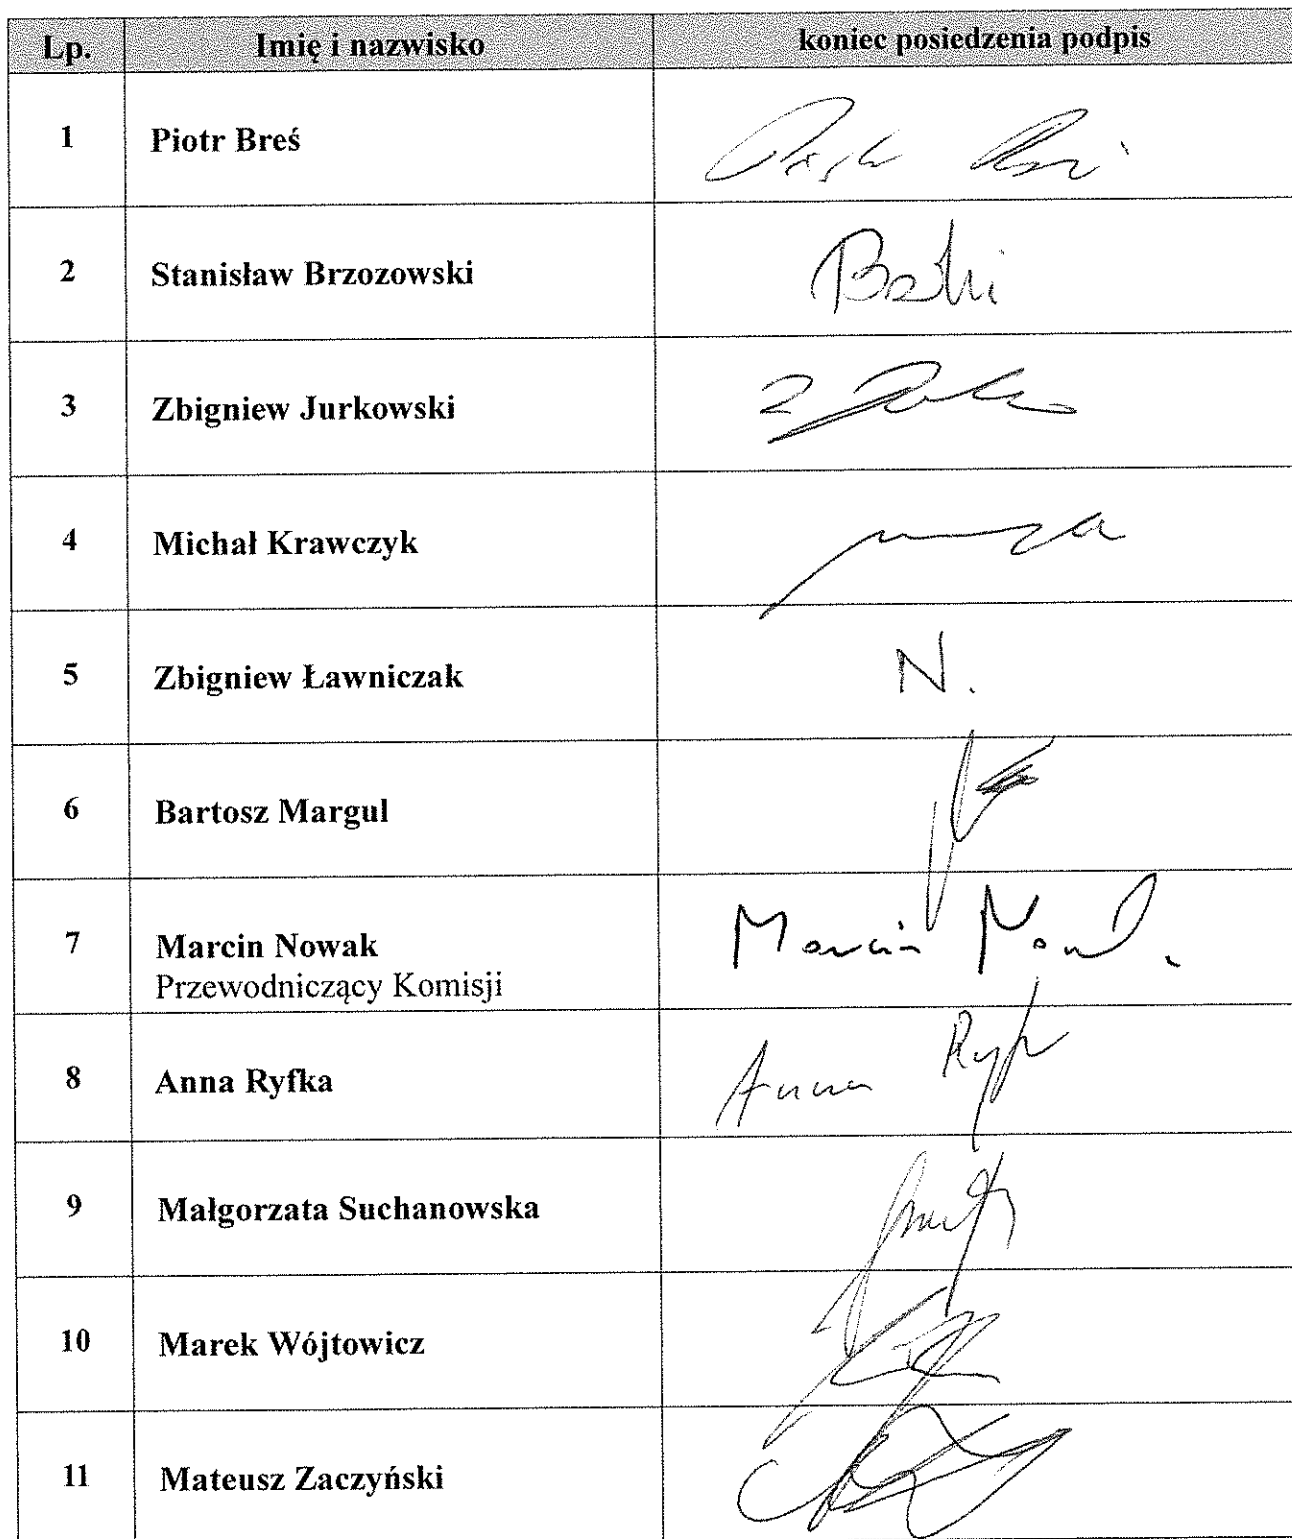 Lp. Imię i nazwisko koniec posiedzenia podpis
1 Piotr Breś
2 Stanisław Brzozowski
3 Zbigniew Jurkowski
4 Michał Krawczyk
5 Zbigniew Ławniczak N.
6 Bartosz Margul
7 Marcin Nowak Marcin
Przewodniczący Komisji
8 Anna Ryfka Anna
9 Małgorzata Suchanowska
10 Marek Wójtowicz
11 Mateusz Zaczyński